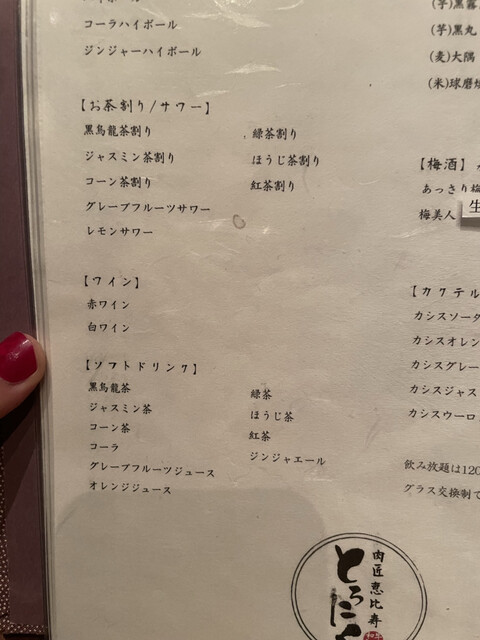 コーラハイボール
ジンジャーハイボール
【お茶割り/サワー】
黒烏龍茶割り
緑茶割り
ジャスミン茶割り
ほうじ茶割り
コーン茶割り
紅茶割り
グレープフルーツサワー
レモンサワー
【ワイン】
赤ワイン
白ワイン
【ソフトドリンク】
黒烏龍茶
緑茶
ジャスミン茶
ほうじ茶
コーン茶
紅茶
コーラ
ジンジャエール
グレープフルーツジュース
オレンジジュース
(芋)黒霧
(芋)黒丸
(麦)大隅
(米)球磨焼
【梅酒】
あっさり梅
梅美人
生
【カクテル
カシスソーダ
カシスオレン
カシスグレー
カシスジャス
カシスウーロ
飲み放題は120
グラス交換制で
肉匠恵比寿
とろに